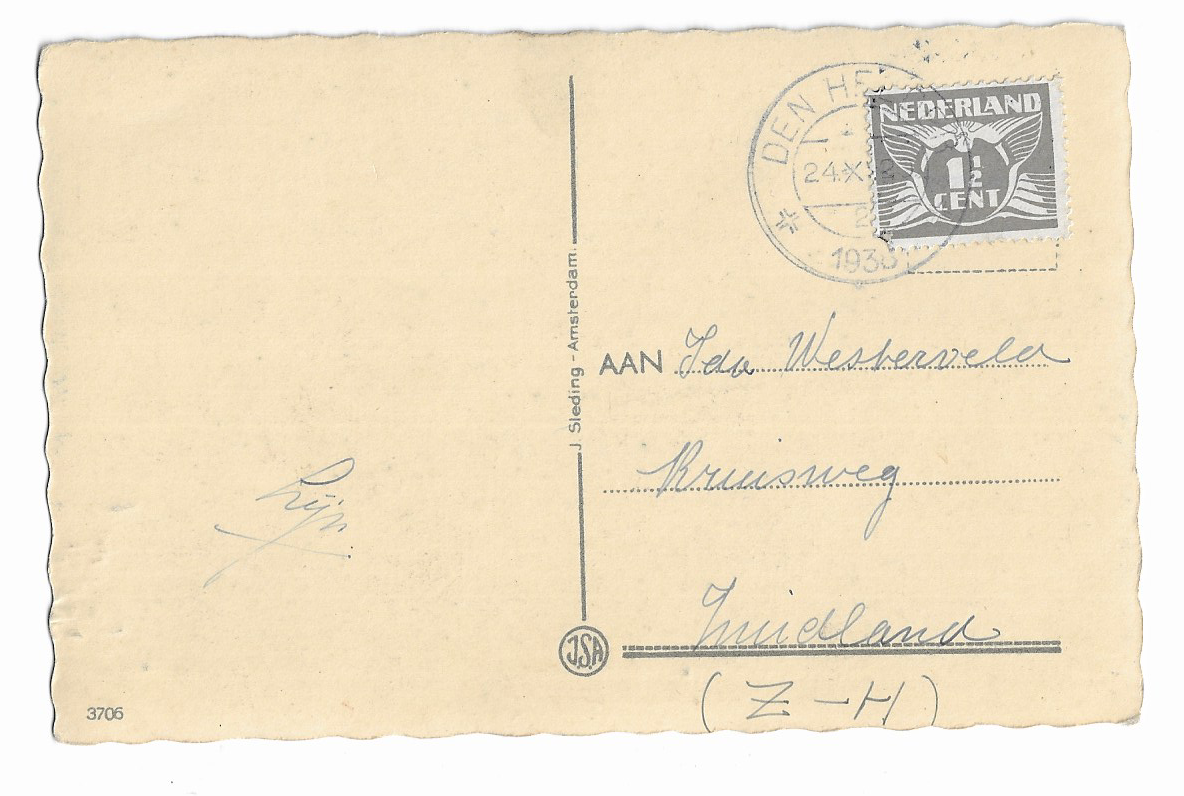 DEN HE
24.X 12
1938
NEDERLAND
1½
CENT
J Sleding - Amsterdam.
AAN Ida Westerveld
Kruisweg
Zuidland
(Z-H)
J.S.A
3706